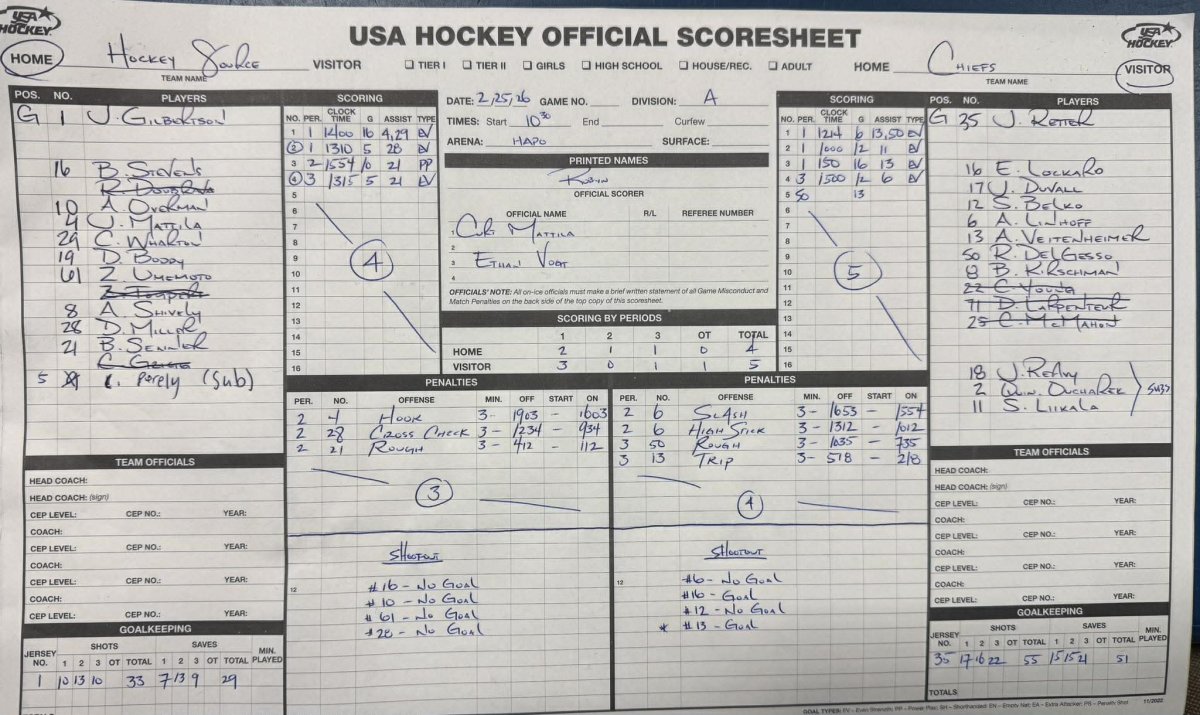 USA HOCKEY
USA HOCKEY OFFICIAL SCORESHEET
USA HOCKEY
HOME Hockey Source VISITOR
TEAM NAME
☐ TIER I ☐ TIER II ☐ GIRLS ☐ HIGH SCHOOL ☐ HOUSE/REC. ☐ ADULT
HOME Chiefs VISITOR
TEAM NAME
POS. NO. PLAYERS
G 1 J. Gilbertson
16 B. Stevens
R. Douglas
10 A. Overman
4 J. Mattila
29 C. Wharton
19 D. Boddy
61 Z. Umemoto
8 A. Shively
28 D. Miller
21 B. Senner
5 C. Perely (Sub)
TEAM OFFICIALS
HEAD COACH:
HEAD COACH: (sign)
CEP LEVEL: CEP NO.: YEAR:
COACH:
CEP LEVEL: CEP NO.: YEAR:
COACH:
CEP LEVEL: CEP NO.: YEAR:
COACH:
CEP LEVEL: CEP NO.: YEAR:
GOALKEEPING
JERSEY NO. SHOTS SAVES MIN. PLAYED
1 2 3 OT TOTAL 1 2 3 OT TOTAL
1 10 13 10 33 7 13 9 29
SCORING
NO. PER. CLOCK TIME G ASSIST TYPE
1 1 1400 16 4,29 EV
2 1 1310 5 28 EV
3 2 1554 10 21 PP
4 3 1315 5 21 EV
5
6
7
8
9
10
11
12
13
14
15
16
4
DATE: 2,25,26 GAME NO. DIVISION: A
TIMES: Start 10:30 End Curfew
ARENA: HAPO SURFACE:
PRINTED NAMES
Robin
OFFICIAL SCORER
OFFICIAL NAME R/L REFEREE NUMBER
1 Curt Mattila
2
3 Ethan Vogt
4
OFFICIALS' NOTE: All on-ice officials must make a brief written statement of all Game Misconduct and
Match Penalties on the back side of the top copy of this scoresheet.
SCORING BY PERIODS
1 2 3 OT TOTAL
HOME 2 1 1 0 4
VISITOR 3 0 1 1 5
SCORING
NO. PER. CLOCK TIME G ASSIST TYPE
1 1 1214 6 13,50 EV
2 1 1000 12 11 EV
3 1 150 16 13 EV
4 3 1500 12 6 EV
5 SO 13
6
7
8
9
10
11
12
13
14
15
16
5
PENALTIES
PER. NO. OFFENSE MIN. OFF START ON
2 4 Hook 3- 1903 - 1603
2 28 Cross Check 3- 1234 - 934
2 21 Rough 3- 412 - 112
3
Shootout
12
#16 - No Goal
#10 - No Goal
#61 - No Goal
#28 - No Goal
PENALTIES
PER. NO. OFFENSE MIN. OFF START ON
2 6 Slash 3- 1653 - 1554
2 6 High Stick 3- 1312 - 1012
3 50 Rough 3- 1035 - 735
3 13 Trip 3- 518 - 218
4
Shootout
12
#6 - No Goal
#16 - Goal
#12 - No Goal
* #13 - Goal
POS. NO. PLAYERS
G 35 J. Retter
16 E. Lockard
17 J. Duvall
12 S. Belko
6 A. Linhoff
13 A. Veitenheimer
50 R. DelGesso
8 B. Kirschman
22 C. Young
71 D. Carpenteur
25 C. McMahon
18 J. Reavy
2 Quin. Oucharek
11 S. Liikala
Subs
TEAM OFFICIALS
HEAD COACH:
HEAD COACH: (sign)
CEP LEVEL: CEP NO.: YEAR:
COACH:
CEP LEVEL: CEP NO.: YEAR:
COACH:
CEP LEVEL: CEP NO.: YEAR:
COACH:
CEP LEVEL: CEP NO.: YEAR:
GOALKEEPING
JERSEY NO. SHOTS SAVES MIN. PLAYED
1 2 3 OT TOTAL 1 2 3 OT TOTAL
35 17 16 22 55 15 15 21 51
TOTALS
GOAL TYPES: EV – Even Strength; PP – Power Play; SH – Shorthanded; EN – Empty Net; EA – Extra Attacker; PS – Penalty Shot 11/2022